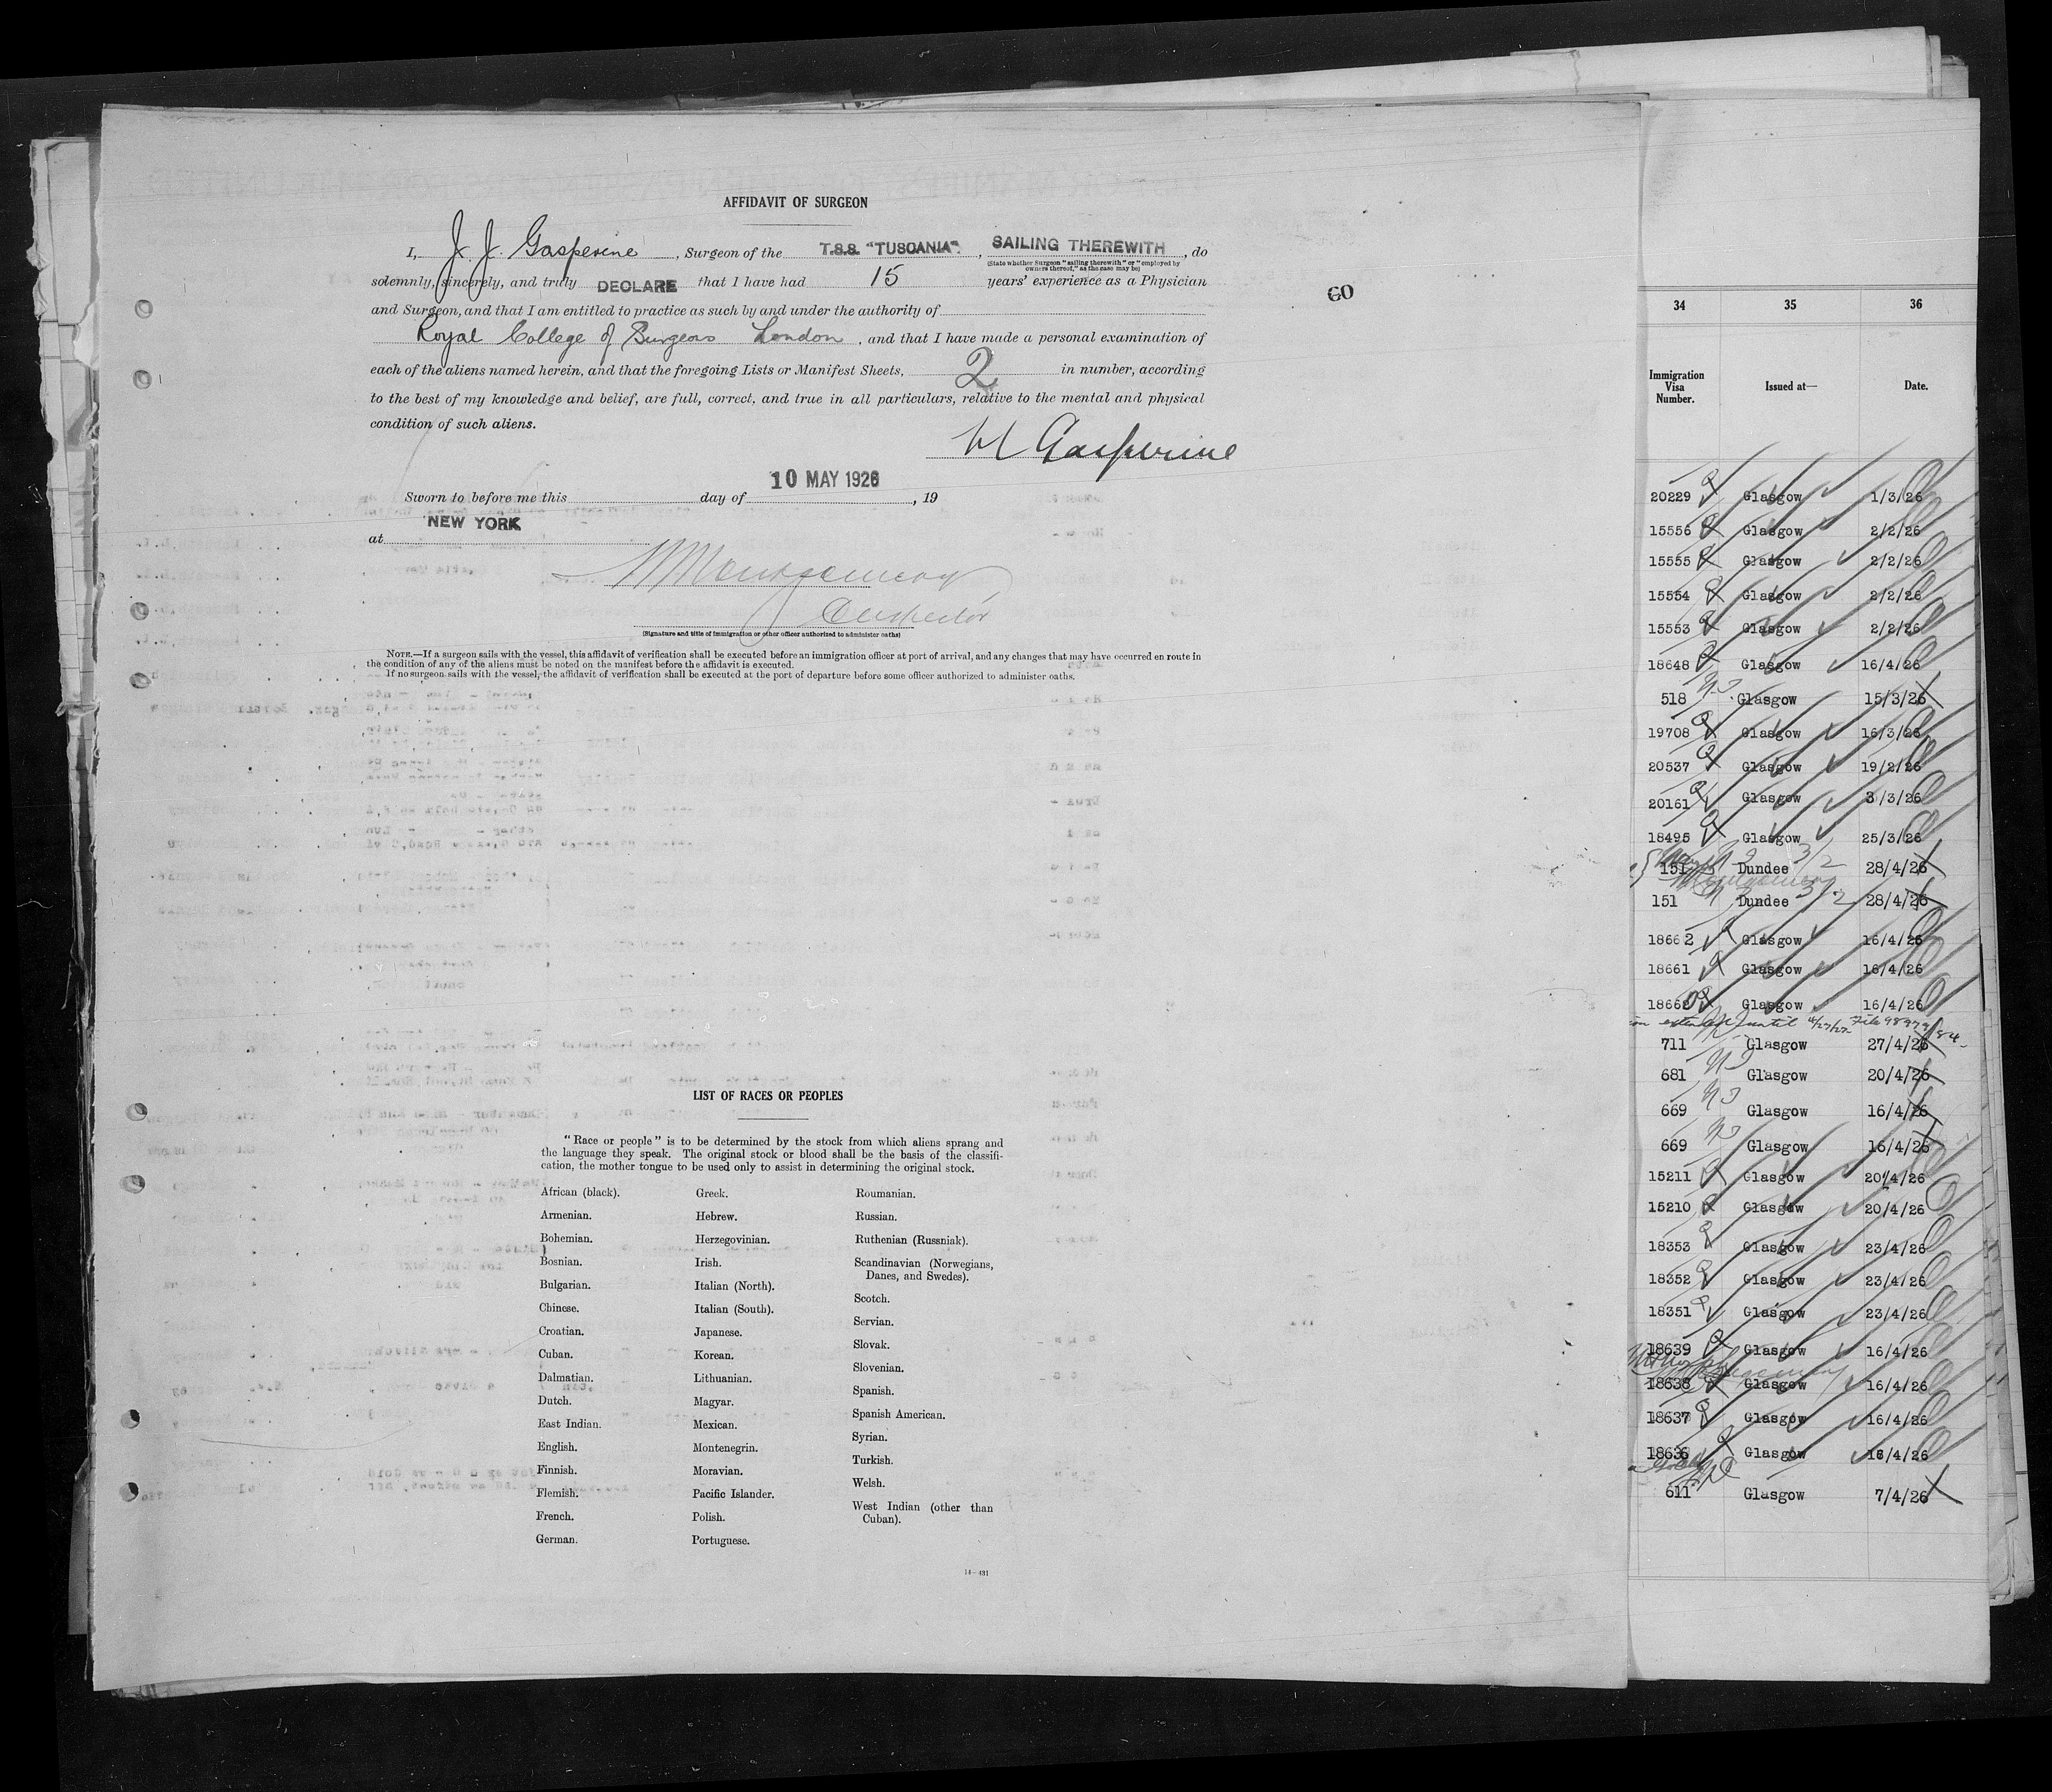 AFFIDAVIT OF SURGEON
I, J. J. Gasperine, Surgeon of the T.S.S. "TUSCANIA", SAILING THEREWITH, do
(State whether Surgeon "sailing therewith" or "employed by
owners thereof," as the case may be)
solemnly, sincerely, and truly DECLARE that I have had 15 years' experience as a Physician
and Surgeon, and that I am entitled to practice as such by and under the authority of
Royal College of Surgeons London, and that I have made a personal examination of
each of the aliens named herein, and that the foregoing Lists or Manifest Sheets, 2 in number, according
to the best of my knowledge and belief, are full, correct, and true in all particulars, relative to the mental and physical
condition of such aliens.
Gasperine
10 MAY 1926
Sworn to before me this day of , 19
NEW YORK
at
Montgomery
Inspector
(Signature and title of immigration or other officer authorized to administer oaths)
NOTE.—If a surgeon sails with the vessel, this affidavit of verification shall be executed before an immigration officer at port of arrival, and any changes that may have occurred en route in
the condition of any of the aliens must be noted on the manifest before the affidavit is executed.
If no surgeon sails with the vessel, the affidavit of verification shall be executed at the port of departure before some officer authorized to administer oaths.
60
LIST OF RACES OR PEOPLES
"Race or people" is to be determined by the stock from which aliens sprang and
the language they speak. The original stock or blood shall be the basis of the classifi-
cation, the mother tongue to be used only to assist in determining the original stock.
African (black).
Armenian.
Bohemian.
Bosnian.
Bulgarian.
Chinese.
Croatian.
Cuban.
Dalmatian.
Dutch.
East Indian.
English.
Finnish.
Flemish.
French.
German.
Greek.
Hebrew.
Herzegovinian.
Irish.
Italian (North).
Italian (South).
Japanese.
Korean.
Lithuanian.
Magyar.
Mexican.
Montenegrin.
Moravian.
Pacific Islander.
Polish.
Portuguese.
Roumanian.
Russian.
Ruthenian (Russniak).
Scandinavian (Norwegians,
Danes, and Swedes).
Scotch.
Servian.
Slovak.
Slovenian.
Spanish.
Spanish American.
Syrian.
Turkish.
Welsh.
West Indian (other than
Cuban).
14—431
34 35 36
Immigration
Visa
Number.
Issued at—
Date.
20229 Glasgow 1/3/26
15556 Glasgow 2/2/26
15555 Glasgow 2/2/26
15554 Glasgow 2/2/26
15553 Glasgow 2/2/26
18648 Glasgow 16/4/26
518 Glasgow 15/3/26
19708 Glasgow 16/3/26
20537 Glasgow 19/2/26
20161 Glasgow 3/3/26
18495 Glasgow 25/3/26
151 Dundee 3/2 28/4/26
151 Dundee 3/2 28/4/26
18662 Glasgow 16/4/26
18661 Glasgow 16/4/26
18662 Glasgow 16/4/26
until 4/27/27 File
711 Glasgow 27/4/26
681 Glasgow 20/4/26
669 Glasgow 16/4/26
669 Glasgow 16/4/26
15211 Glasgow 20/4/26
15210 Glasgow 20/4/26
18353 Glasgow 23/4/26
18352 Glasgow 23/4/26
18351 Glasgow 23/4/26
18639 Glasgow 16/4/26
18638 Glasgow 16/4/26
18637 Glasgow 16/4/26
18636 Glasgow 16/4/26
611 Glasgow 7/4/26